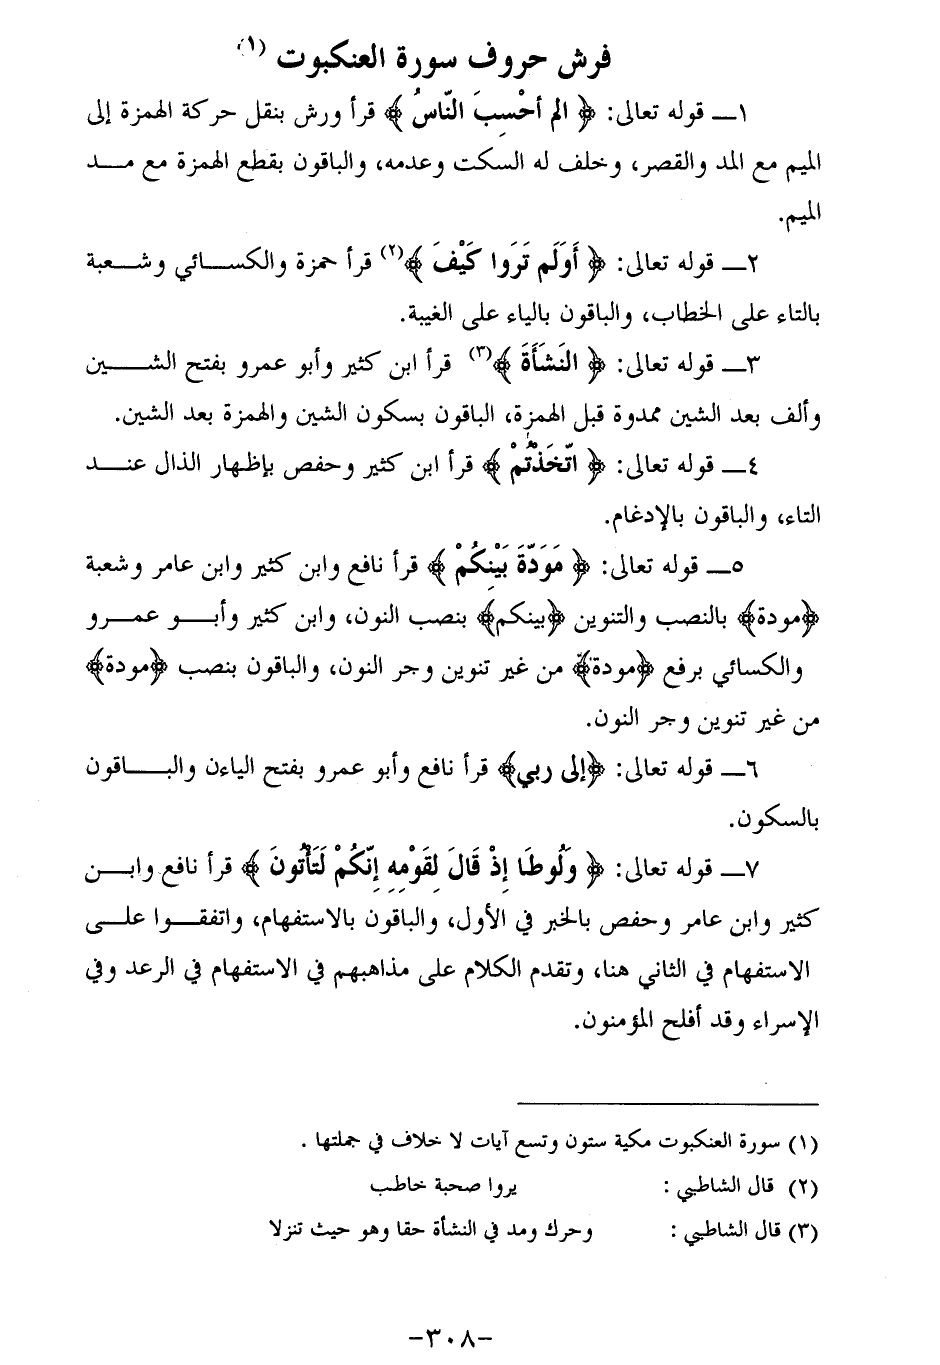 فرش حروف سورة العنكبوت (١)
١ــ قوله تعالى: ﴿ الم أَحَسِبَ النَّاسُ ﴾ قرأ ورش بنقل حركة الهمزة إلى
الميم مع المد والقصر، وخلف له السكت وعدمه، والباقون بقطع الهمزة مع مــد
الميم.
٢ــ قوله تعالى: ﴿ أَوَلَم تَرَوا كَيْفَ ﴾(٢) قرأ حمزة والكســائي وشــعبة
بالتاء على الخطاب، والباقون بالياء على الغيبة.
٣ــ قوله تعالى: ﴿ النَشأَةَ ﴾(٣) قرأ ابن كثير وأبو عمرو بفتح الشــــين
وألف بعد الشين ممدوة قبل الهمزة، الباقون بسكون الشين والهمزة بعد الشين.
٤ــ قوله تعالى: ﴿ اتّخَذْتُمْ ﴾ قرأ ابن كثير وحفص بإظهار الذال عنــد
التاء، والباقون بالإدغام.
٥ــ قوله تعالى: ﴿ مَوَدَّةَ بَيْنِكُمْ ﴾ قرأ نافع وابن كثير وابن عامر وشعبة
﴿مودة﴾ بالنصب والتنوين ﴿بينكم﴾ بنصب النون، وابن كثير وأبــو عمــرو
والكسائي برفع ﴿مودة﴾ من غير تنوين وجر النون، والباقون بنصب ﴿مودة﴾
من غير تنوين وجر النون.
٦ــ قوله تعالى: ﴿إلى ربي﴾ قرأ نافع وأبو عمرو بفتح الياءن والبــــاقون
بالسكون.
٧ــ قوله تعالى: ﴿ وَلُوطَا إِذْ قَالَ لِقَوْمِهِ إِنّكُمْ لَتَأْتُونَ ﴾ قرأ نافع وابــن
كثير وابن عامر وحفص بالخبر في الأول، والباقون بالاستفهام، واتفقــوا علــى
الاستفهام في الثاني هنا، وتقدم الكلام على مذاهبهم في الاستفهام في الرعد وفي
الإسراء وقد أفلح المؤمنون.
(١) سورة العنكبوت مكية ستون وتسع آيات لا خلاف في جملتها .
(٢) قال الشاطبي : يروا صحبة خاطب
(٣) قال الشاطبي : وحرك ومد في النشأة حقا وهو حيث تنزلا
-٣٠٨-